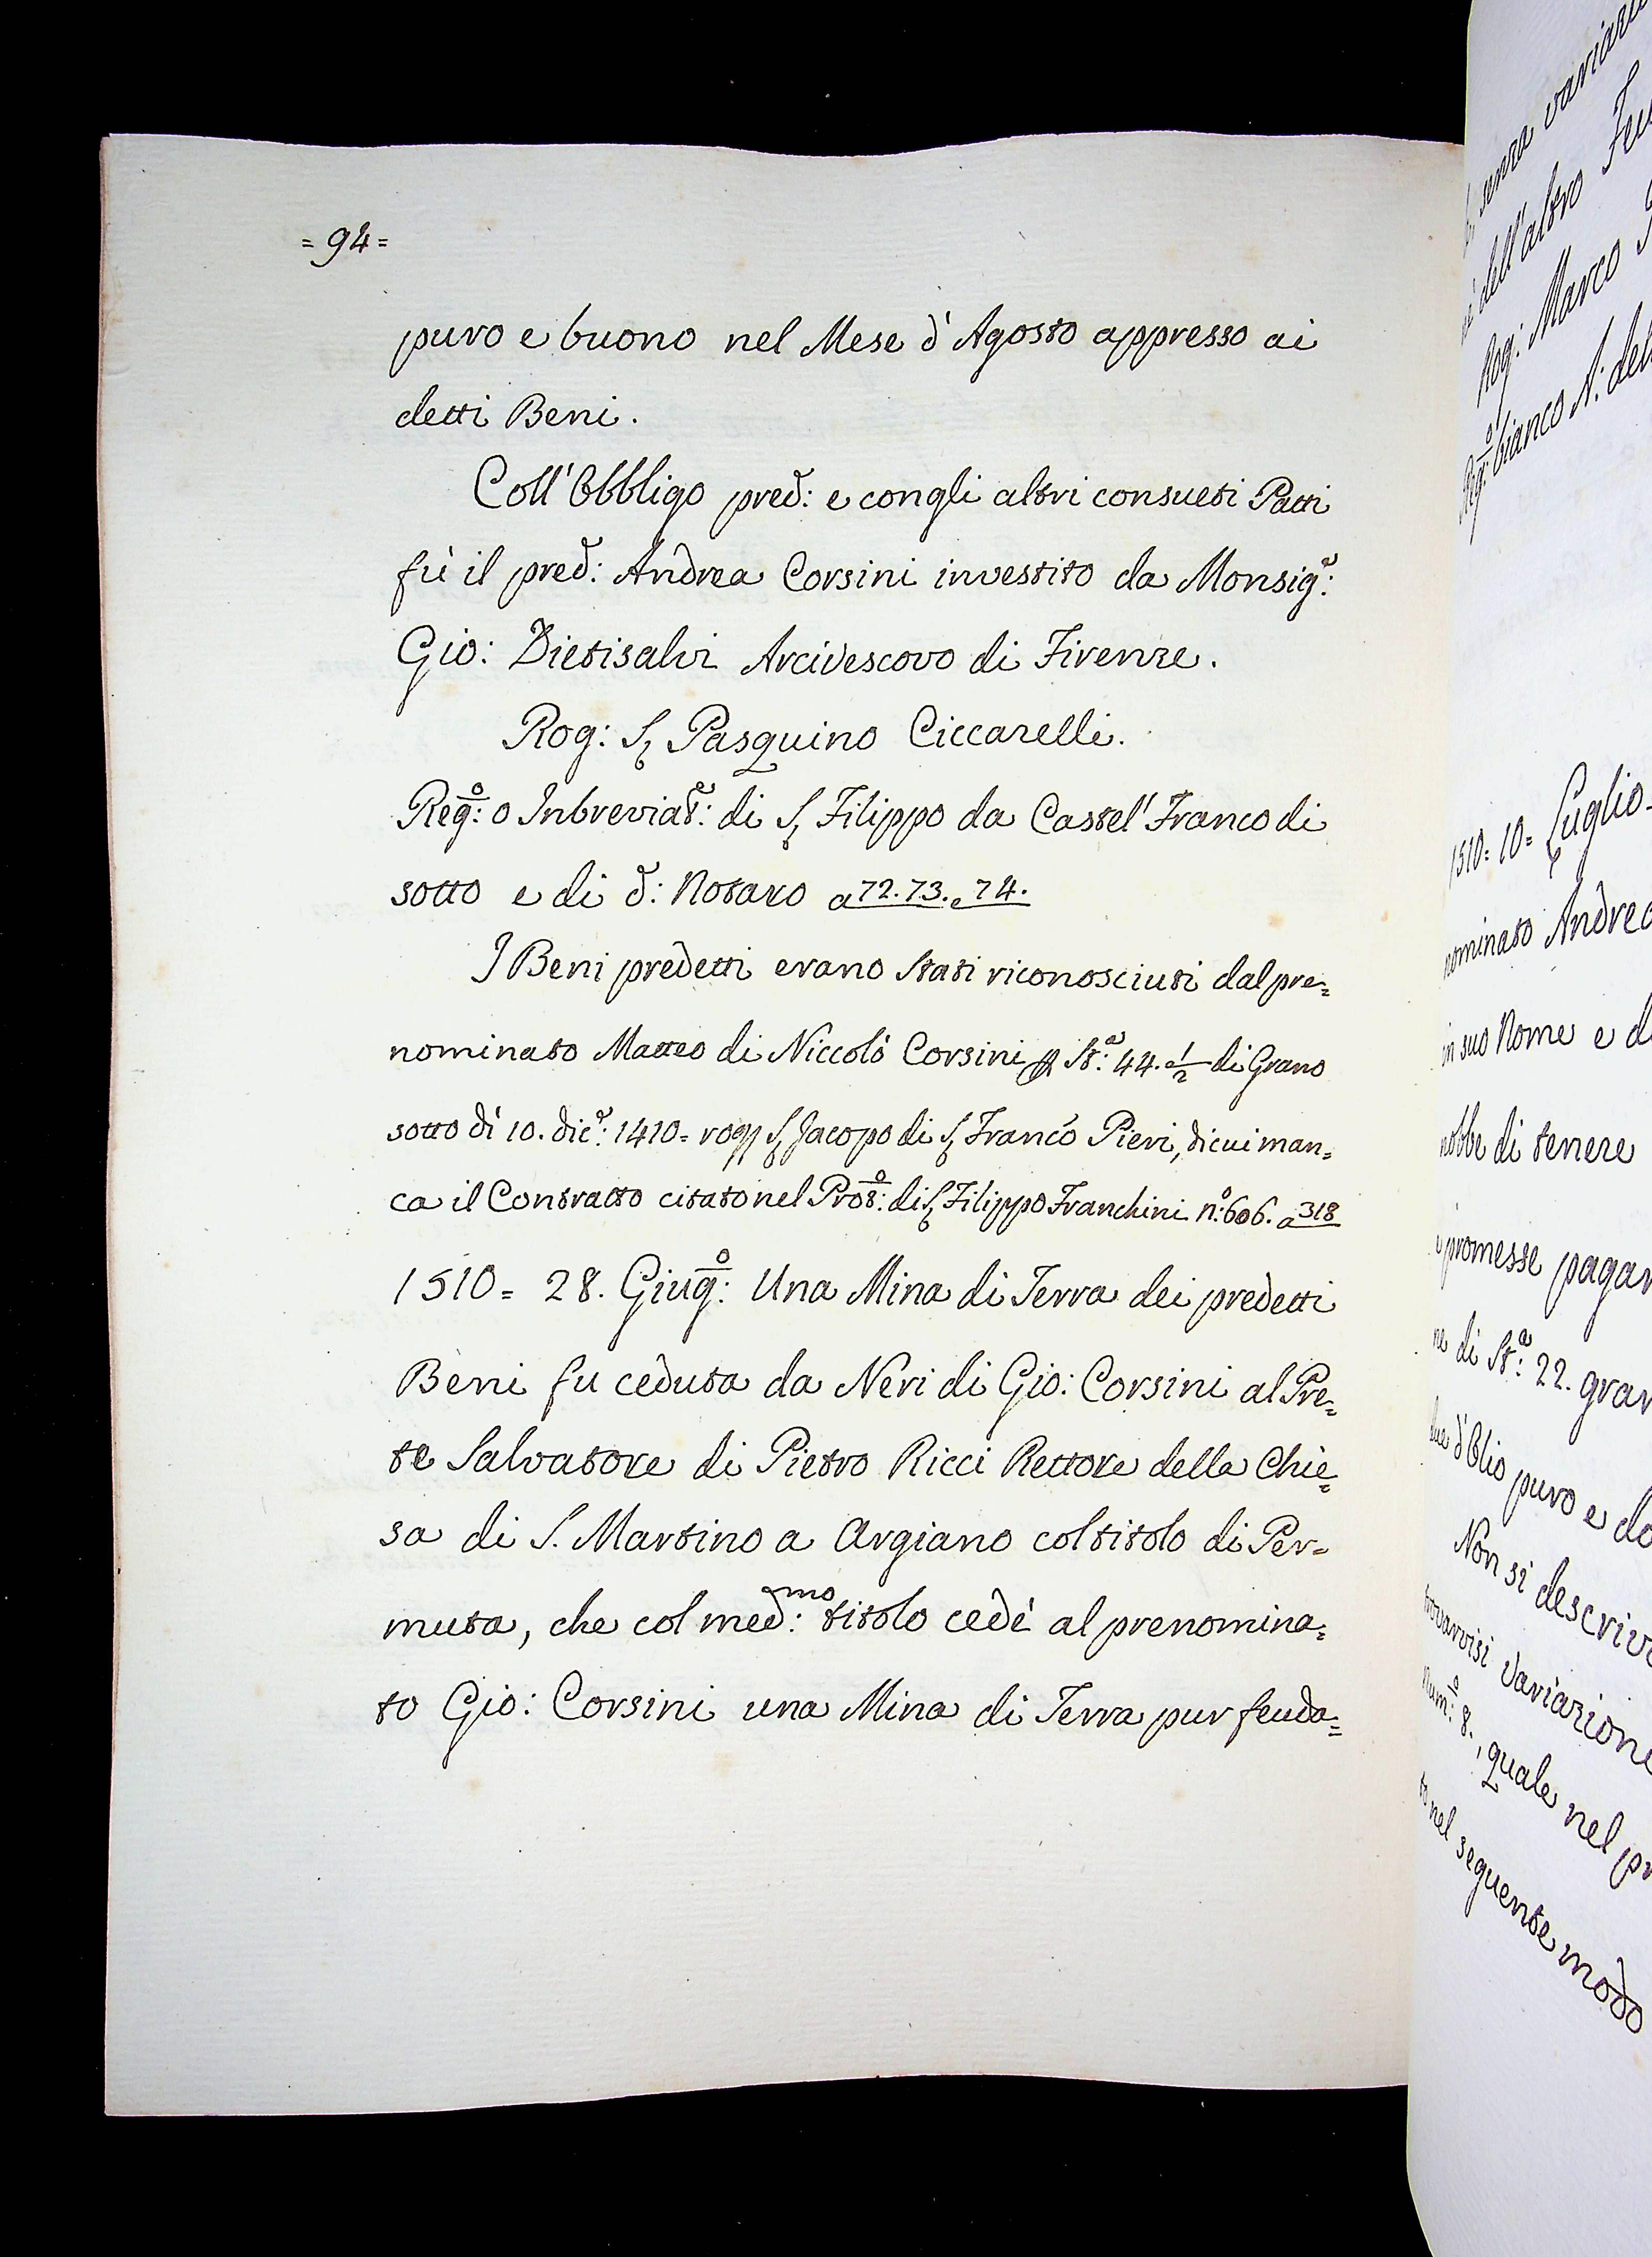 = 94 =
puro e buono nel Mese d'Agosto appresso ai
detti Beni.
Coll'Obbligo pred: e congli altri consueti Patti
fù il pred: Andrea Corsini investito da Monsig.e:
Gio: Dietisalvi Arcivescovo di Firenze.
Rog: S. Pasquino Ciccarelli.
Reg.o: o Inbreviat.e: di S. Filippo da Castel' Franco di
sotto e di d: Notaro a 72. 73. e 74.
I Beni predetti erano stati riconosciuti dal pre=
nominato Matteo di Niccolò Corsini p St.a: 44. 1/2 di Grano
sotto dì 10. dic.e: 1410= rog S. Jacopo di S. Franco Pieri, di cui man=
ca il Contratto citato nel Prot.o: di S. Filippo Franchini n.o: 606. a 318
1510= 28. Giug.o: Una Mina di Terra dei predetti
Beni fu ceduta da Neri di Gio: Corsini al Pre=
te Salvatore di Pietro Ricci Rettore della Chie=
sa di S. Martino a Argiano col titolo di Per=
muta, che col med.mo: titolo cedè al prenomina=
to Gio: Corsini una Mina di Terra pur feuda=
senza
dell'altro
Rog: Marco
bianco N: del
1510= 10= Luglio
nominato Andrea
in suo Nome e d
nobbe di tenere
promesse pagar
ne di St.a: 22. gran
d'Olio puro e do
Non si descriv
variazione
Num.o: 8., quale nel pr
to nel seguente modo